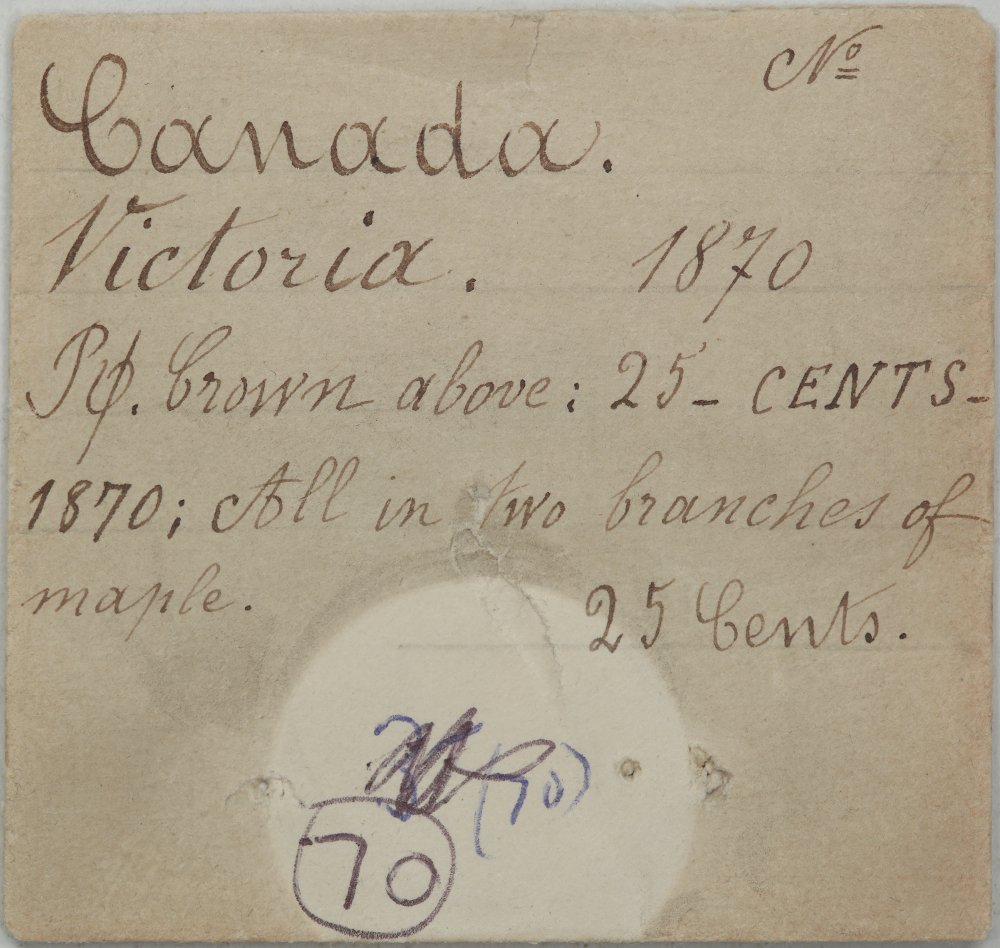 Nº
Canada.
Victoria. 1870
Rφ. Crown above: 25 - CENTS -
1870; All in two branches of
maple.
25 Cents.
(70)
70